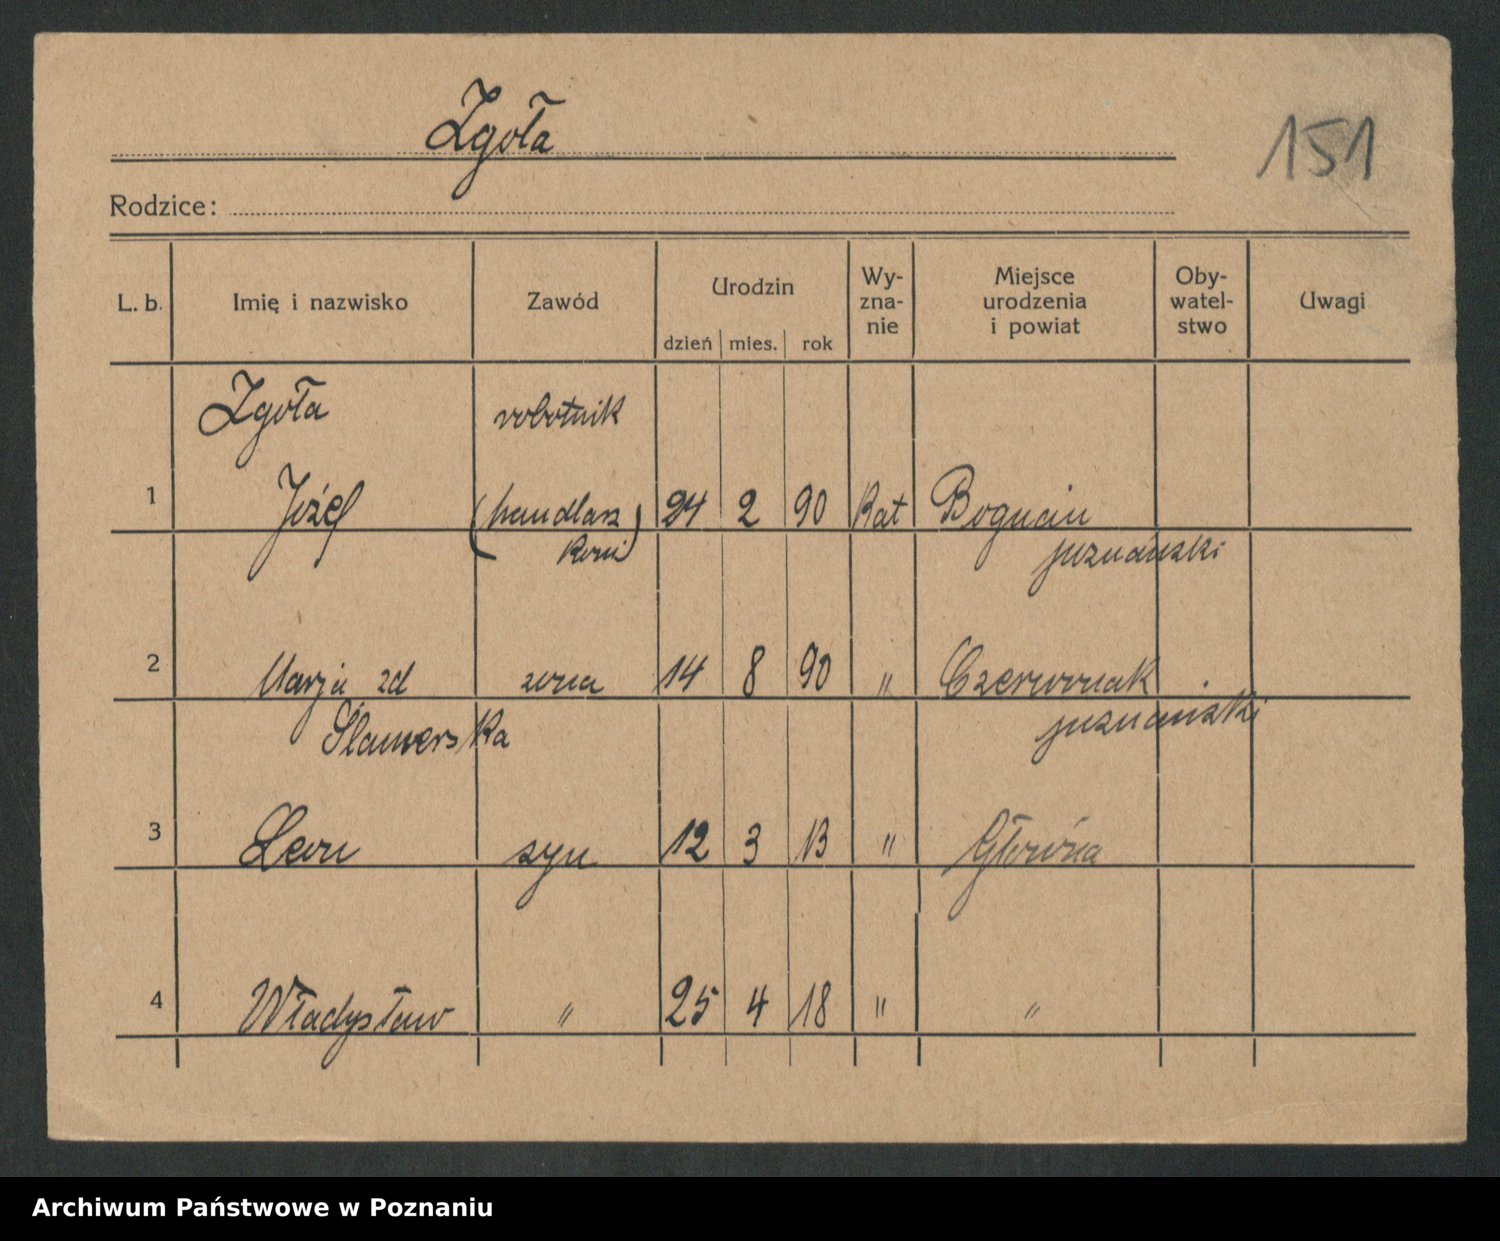 Zgoła
151
Rodzice:
L. b. Imię i nazwisko Zawód Urodzin dzień mies. rok Wy-zna-nie Miejsce urodzenia i powiat Oby-watel-stwo Uwagi
Zgoła robotnik
1 Józef (handlarz 24 2 90 Kat Bogucin
koni) poznański
2 Marja zd żona 14 8 90 " Czerwonak
poznański
3 Leon syn 12 3 13 " Główna
4 Władysław " 25 4 18 " "
Archiwum Państwowe w Poznaniu